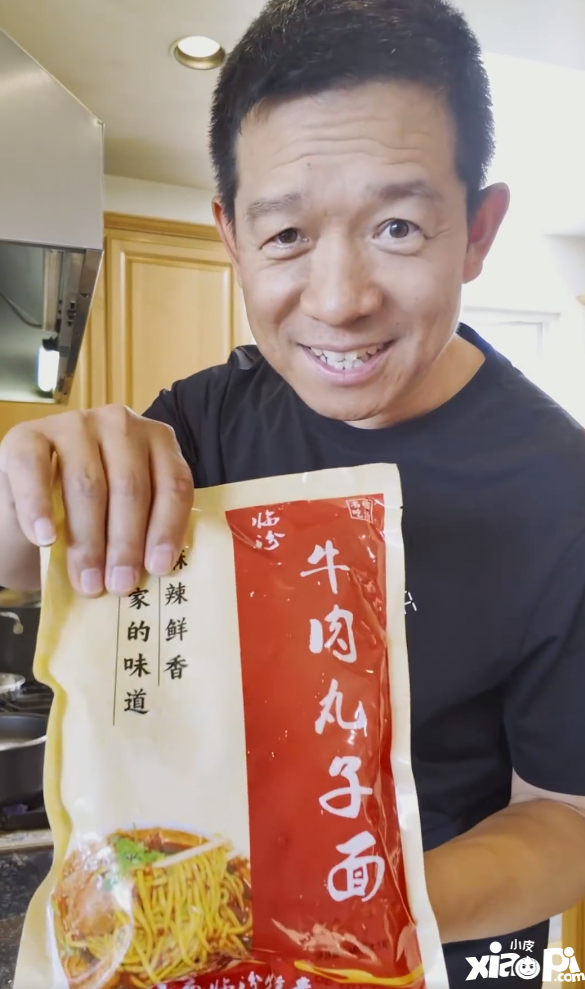 临汾
牛肉丸子面
麻辣鲜香
家的味道
小皮
xiaopi
.com